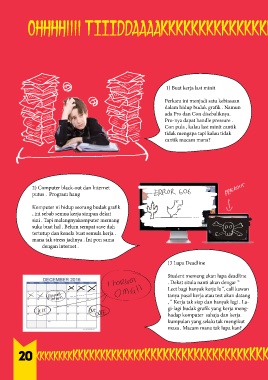 OHHHH!!!! TIIIDDAAAAKKKKKKKKKKKKKK
1) Buat kerja last minit
Perkara ini menjadi satu kebiasaan
dalam hidup budak grafik . Namun
ada Pro dan Con disebaliknya.
Pro-nya dapat handle pressure .
Con pula , kalau last minit cantik
tidak mengapa tapi kalau tidak
cantik macam mana?
2) Computer black-out dan Internet
putus . Program hang
Komputer ni hidup seorang budak grafik
, ini sebab semua kerja simpan dekat
sini . Tapi malangnya komputer memang
suka buat hal . Belum sempat save dah
tertutup dan kenala buat semula kerja .
mana tak stress jadinya . Ini pon sama
dengan internet .
ERROR 606
3) Lupa Deadline
Student memang akan lupa deadline
. Dekat situla nanti akan dengar "
Last lagi banyak kerja la", call kawan
tanya pasal kerja atau test akan datang
. " Kerja tak siap dan banyak lagi . La-
gi-lagi budak grafik yang kerja meng-
hadap komputer sahaja dan kerja
kumpulan yang selalu tak mengikut
masa . Macam mana tak lupa kan?
DECEMBER 2016
OMG!!
20 KKKKKKKKKKKKKKKKKKKKKKKKKKKKKKKKKK